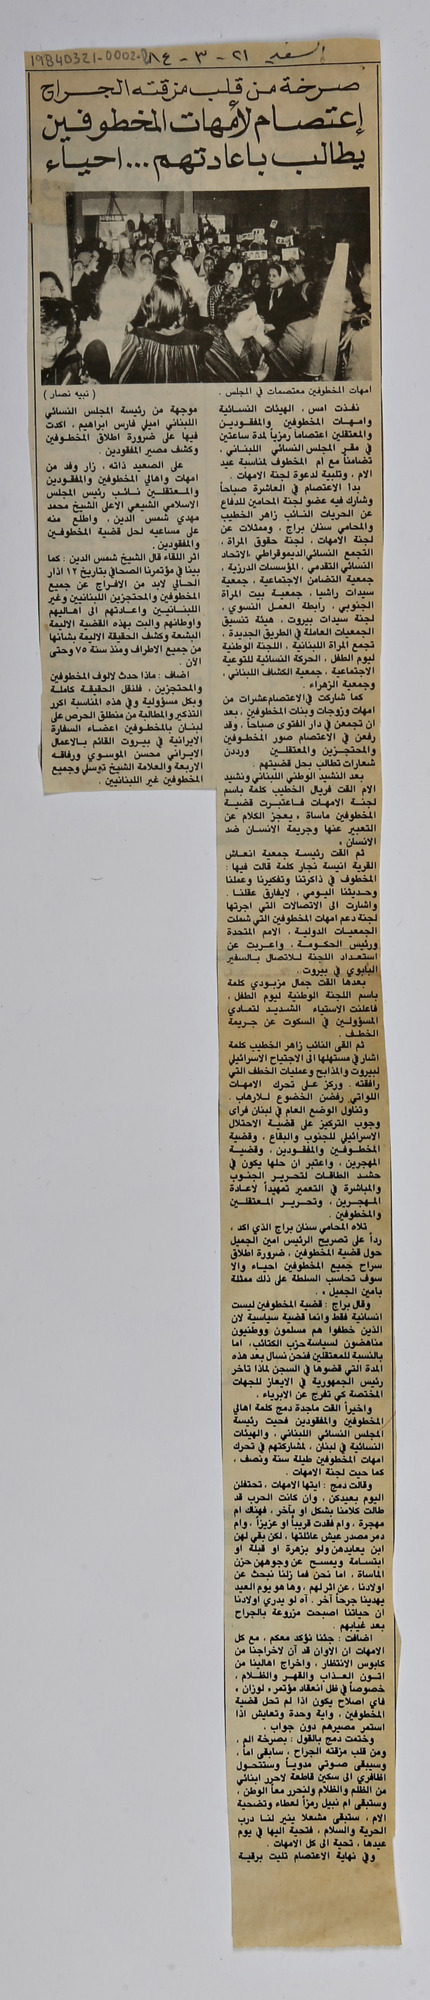 19840321-0002
السفير ٢١ - ٣ - ٨٤
صرخة من قلب مزقته الجراح
إعتصام لأمهات المخطوفين
يطالب باعادتهم... احياء
امهات المخطوفين معتصمات في المجلس .
( نبيه نصار )
نفذت امس ، الهيئات النسائية
وامهات المخطوفين والمفقودين
والمعتقلين اعتصاماً رمزياً لمدة ساعتين
في مقر المجلس النسائي اللبناني ،
تضامناً مع ام المخطوف لمناسبة عيد
الام ، وتلبية لدعوة لجنة الامهات .
بدأ الاعتصام في العاشرة صباحاً
وشارك فيه عضو لجنة المحامين للدفاع
عن الحريات النائب زاهر الخطيب
والمحامي سنان براج ، وممثلات عن
لجنة الامهات ، لجنة حقوق المراة ،
التجمع النسائي الديموقراطي ،الاتحاد
النسائي التقدمي ، المؤسسات الدرزية ،
جمعية التضامن الاجتماعية ، جمعية
سيدات راشيا ، جمعية بيت المراة
الجنوبي ، رابطة العمل النسوي ،
لجنة سيدات بيروت ، هيئة تنسيق
الجمعيات العاملة في الطريق الجديدة ،
تجمع المراة اللبنانية ، اللجنة الوطنية
ليوم الطفل ، الحركة النسائية للتوعية
الاجتماعية ، جمعية الكشاف اللبناني ،
وجمعية الزهراء .
كما شاركت في الاعتصام عشرات من
امهات وزوجات وبنات المخطوفين ، بعد
ان تجمعن في دار الفتوى صباحاً ، وقد
رفعن في الاعتصام صور المخطوفين
والمحتجزين والمعتقلين ورددن
شعارات تطالب بحل قضيتهم .
بعد النشيد الوطني اللبناني ونشيد
الام القت فريال الخطيب كلمة باسم
لجنة الامهات فاعتبرت قضية
المخطوفين ماساة « يعجز الكلام عن
التعبير عنها وجريمة الانسان ضد
الانسان »
ثم القت رئيسة جمعية انعاش
القرية انيسة نجار كلمة قالت فيها :
المخطوف في ذاكرتنا وتفكيرنا وعملنا
وحديثنا اليومي ، لايفارق عقلنا .
واشارت الى الاتصالات التي اجرتها
لجنة دعم امهات المخطوفين التي شملت
الجمعيات الدولية ، الامم المتحدة
ورئيس الحكومة ، واعربت عن
استعداد اللجنة للاتصال بالسفير
البابوي في بيروت .
بعدها القت جمال مزبودي كلمة
باسم اللجنة الوطنية ليوم الطفل ،
فاعلنت الاستياء الشديد لتمادي
المسؤولين في السكوت عن جريمة
الخطف .
ثم القى النائب زاهر الخطيب كلمة
اشار في مستهلها الى الاجتياح الاسرائيلي
لبيروت والمذابح وعمليات الخطف التي
رافقته . وركز على تحرك الامهات
اللواتي رفضن الخضوع للارهاب .
وتناول الوضع العام في لبنان فراى
وجوب التركيز على قضية الاحتلال
الاسرائيلي للجنوب والبقاع ، وقضية
المخطوفين والمفقودين ، وقضية
المهجرين ، واعتبر ان حلها يكون في
حشد الطاقات لتحرير الجنوب
والمباشرة في التعمير تمهيداً لاعادة
المهجرين ، وتحرير المعتقلين
والمخطوفين .
تلاه المحامي سنان براج الذي اكد ،
رداً على تصريح الرئيس امين الجميل
حول قضية المخطوفين ، ضرورة اطلاق
سراح جميع المخطوفين احياء والا
سوف تحاسب السلطة على ذلك ممثلة
بامين الجميل » .
وقال براج : قضية المخطوفين ليست
انسانية فقط وانما قضية سياسية لان
الذين خطفوا هم مسلمون ووطنيون
مناهضون لسياسة حزب الكتائب، اما
بالنسبة للمعتقلين فنحن نسال بعد هذه
المدة التي قضوها في السجن لماذا تاخر
رئيس الجمهورية في الايعاز للجهات
المختصة كي تفرج عن الابرياء .
واخيراً القت ماجدة دمج كلمة اهالي
المخطوفين والمفقودين فحيت رئيسة
المجلس النسائي اللبناني ، والهيئات
النسائية في لبنان ، لمشاركتهم في تحرك
امهات المخطوفين طيلة سنة ونصف ،
كما حيت لجنة الامهات .
وقالت دمج : ايتها الامهات ، تحتفلن
اليوم بعيدكن ، وان كانت الحرب قد
طالت كلامنا بشكل او بآخر ، فهناك ام
مهجرة ، وام فقدت قريباً او عزيزاً ، وام
دمر مصدر عيش عائلتها ، لكن بقي لهن
ابن يعايدهن ولو بزهرة او قبلة او
ابتسامة ويمسح عن وجوههن حزن
الماساة ، اما نحن فما زلنا نبحث عن
اولادنا ، عن اثر لهم ، وها هو يوم العيد
يهدينا جرحاً آخر . آه لو يدري اولادنا
ان حياتنا اصبحت مزروعة بالجراح
بعد غيابهم .
اضافت : جئنا نؤكد معكم ، مع كل
الامهات ان الاوان قد آن لاخراجنا من
كابوس الانتظار ، واخراج اهالينا من
اتون العذاب والقهر والظلام ،
خصوصاً في ظل انعقاد مؤتمر « لوزان »
فاي اصلاح يكون اذا لم تحل قضية
المخطوفين ، واية وحدة وتعايش اذا
استمر مصيرهم دون جواب .
وختمت دمج بالقول : بصرخة الم ،
ومن قلب مزقته الجراح ، سابقى اماً ،
وسيبقى صوتي مدوياً وستتحول
اظافري الى سكين قاطعة لاحرر ابنائي
من الظلم والظلام ولنحرر معاً الوطن ،
وستبقى ام نبيل رمزاً لعطاء وتضحية
الام ، ستبقى مشعلا ينير لنا درب
الحرية والسلام ، فتحية اليها في يوم
عيدها ، تحية الى كل الامهات .
وفي نهاية الاعتصام تليت برقية
موجهة من رئيسة المجلس النسائي
اللبناني اميلي فارس ابراهيم ، اكدت
فيها على ضرورة اطلاق المخطوفين
وكشف مصير المفقودين .
على الصعيد ذاته ، زار وفد من
امهات واهالي المخطوفين والمفقودين
والمعتقلين نائب رئيس المجلس
الاسلامي الشيعي الاعلى الشيخ محمد
مهدي شمس الدين ، واطلع منه
على مساعيه لحل قضية المخطوفين
والمفقودين .
اثر اللقاء قال الشيخ شمس الدين : كما
بينا في مؤتمرنا الصحافي بتاريخ ١٢ اذار
الحالي لابد من الافراج عن جميع
المخطوفين والمحتجزين اللبنانيين وغير
اللبنانيين واعادتهم الى اهاليهم
واوطانهم والبت بهذه القضية الاليمة
البشعة وكشف الحقيقة الاليمة بشانها
من جميع الاطراف ومنذ سنة ٧٥ وحتى
الآن .
اضاف : ماذا حدث لالوف المخطوفين
والمحتجزين ، فلنقل الحقيقة كاملة
وبكل مسؤولية وفي هذه المناسبة اكرر
التذكير والمطالبة من منطلق الحرص على
لبنان بالمخطوفين اعضاء السفارة
الايرانية في بيروت القائم بالاعمال
الايراني محسن الموسوي ورفاقه
الاربعة والعلامة الشيخ توسلي وجميع
المخطوفين غير اللبنانيين .